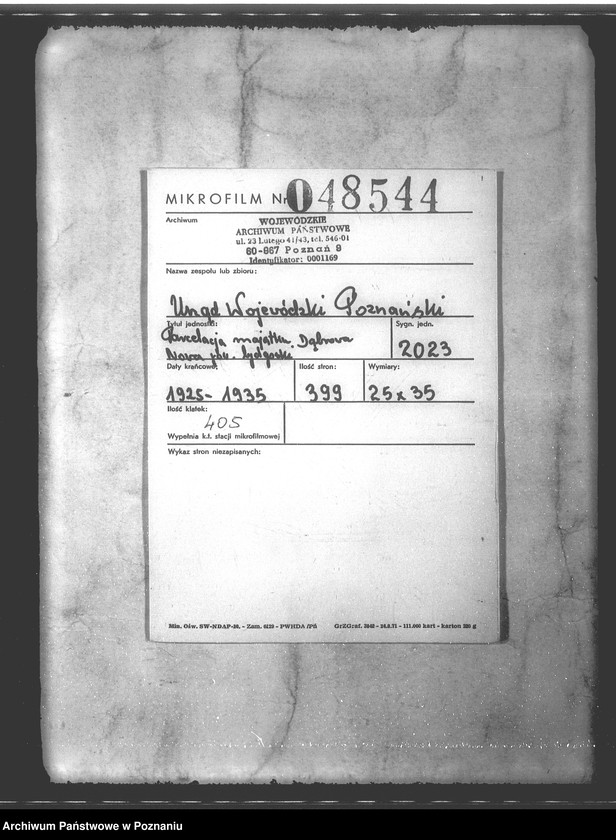 MIKROFILM Nr 048544
Archiwum
WOJEWÓDZKIE
ARCHIWUM PAŃSTWOWE
ul. 23 Lutego 41/43, tel. 546-01
60-967 Poznań 9
Identyfikator: 0001169
Nazwa zespołu lub zbioru:
Urząd Wojewódzki Poznański
Tytuł jednostki:
Sygn. jedn.
Parcelacja majątku Dąbrowa
Nowa pow. bydgoski
2023
Daty krańcowe:
Ilość stron:
Wymiary:
1925-1935
399
25 x 35
Ilość klatek:
405
Wypełnia k.t. stacji mikrofilmowej
Wykaz stron niezapisanych:
Min. Ośw. SW-NDAP-20. - Zam. 6129 - PWHDA /Pń
GrZGraf. 2840 - 24.9.71 - 111.000 kart - karton 220 g
Archiwum Państwowe w Poznaniu